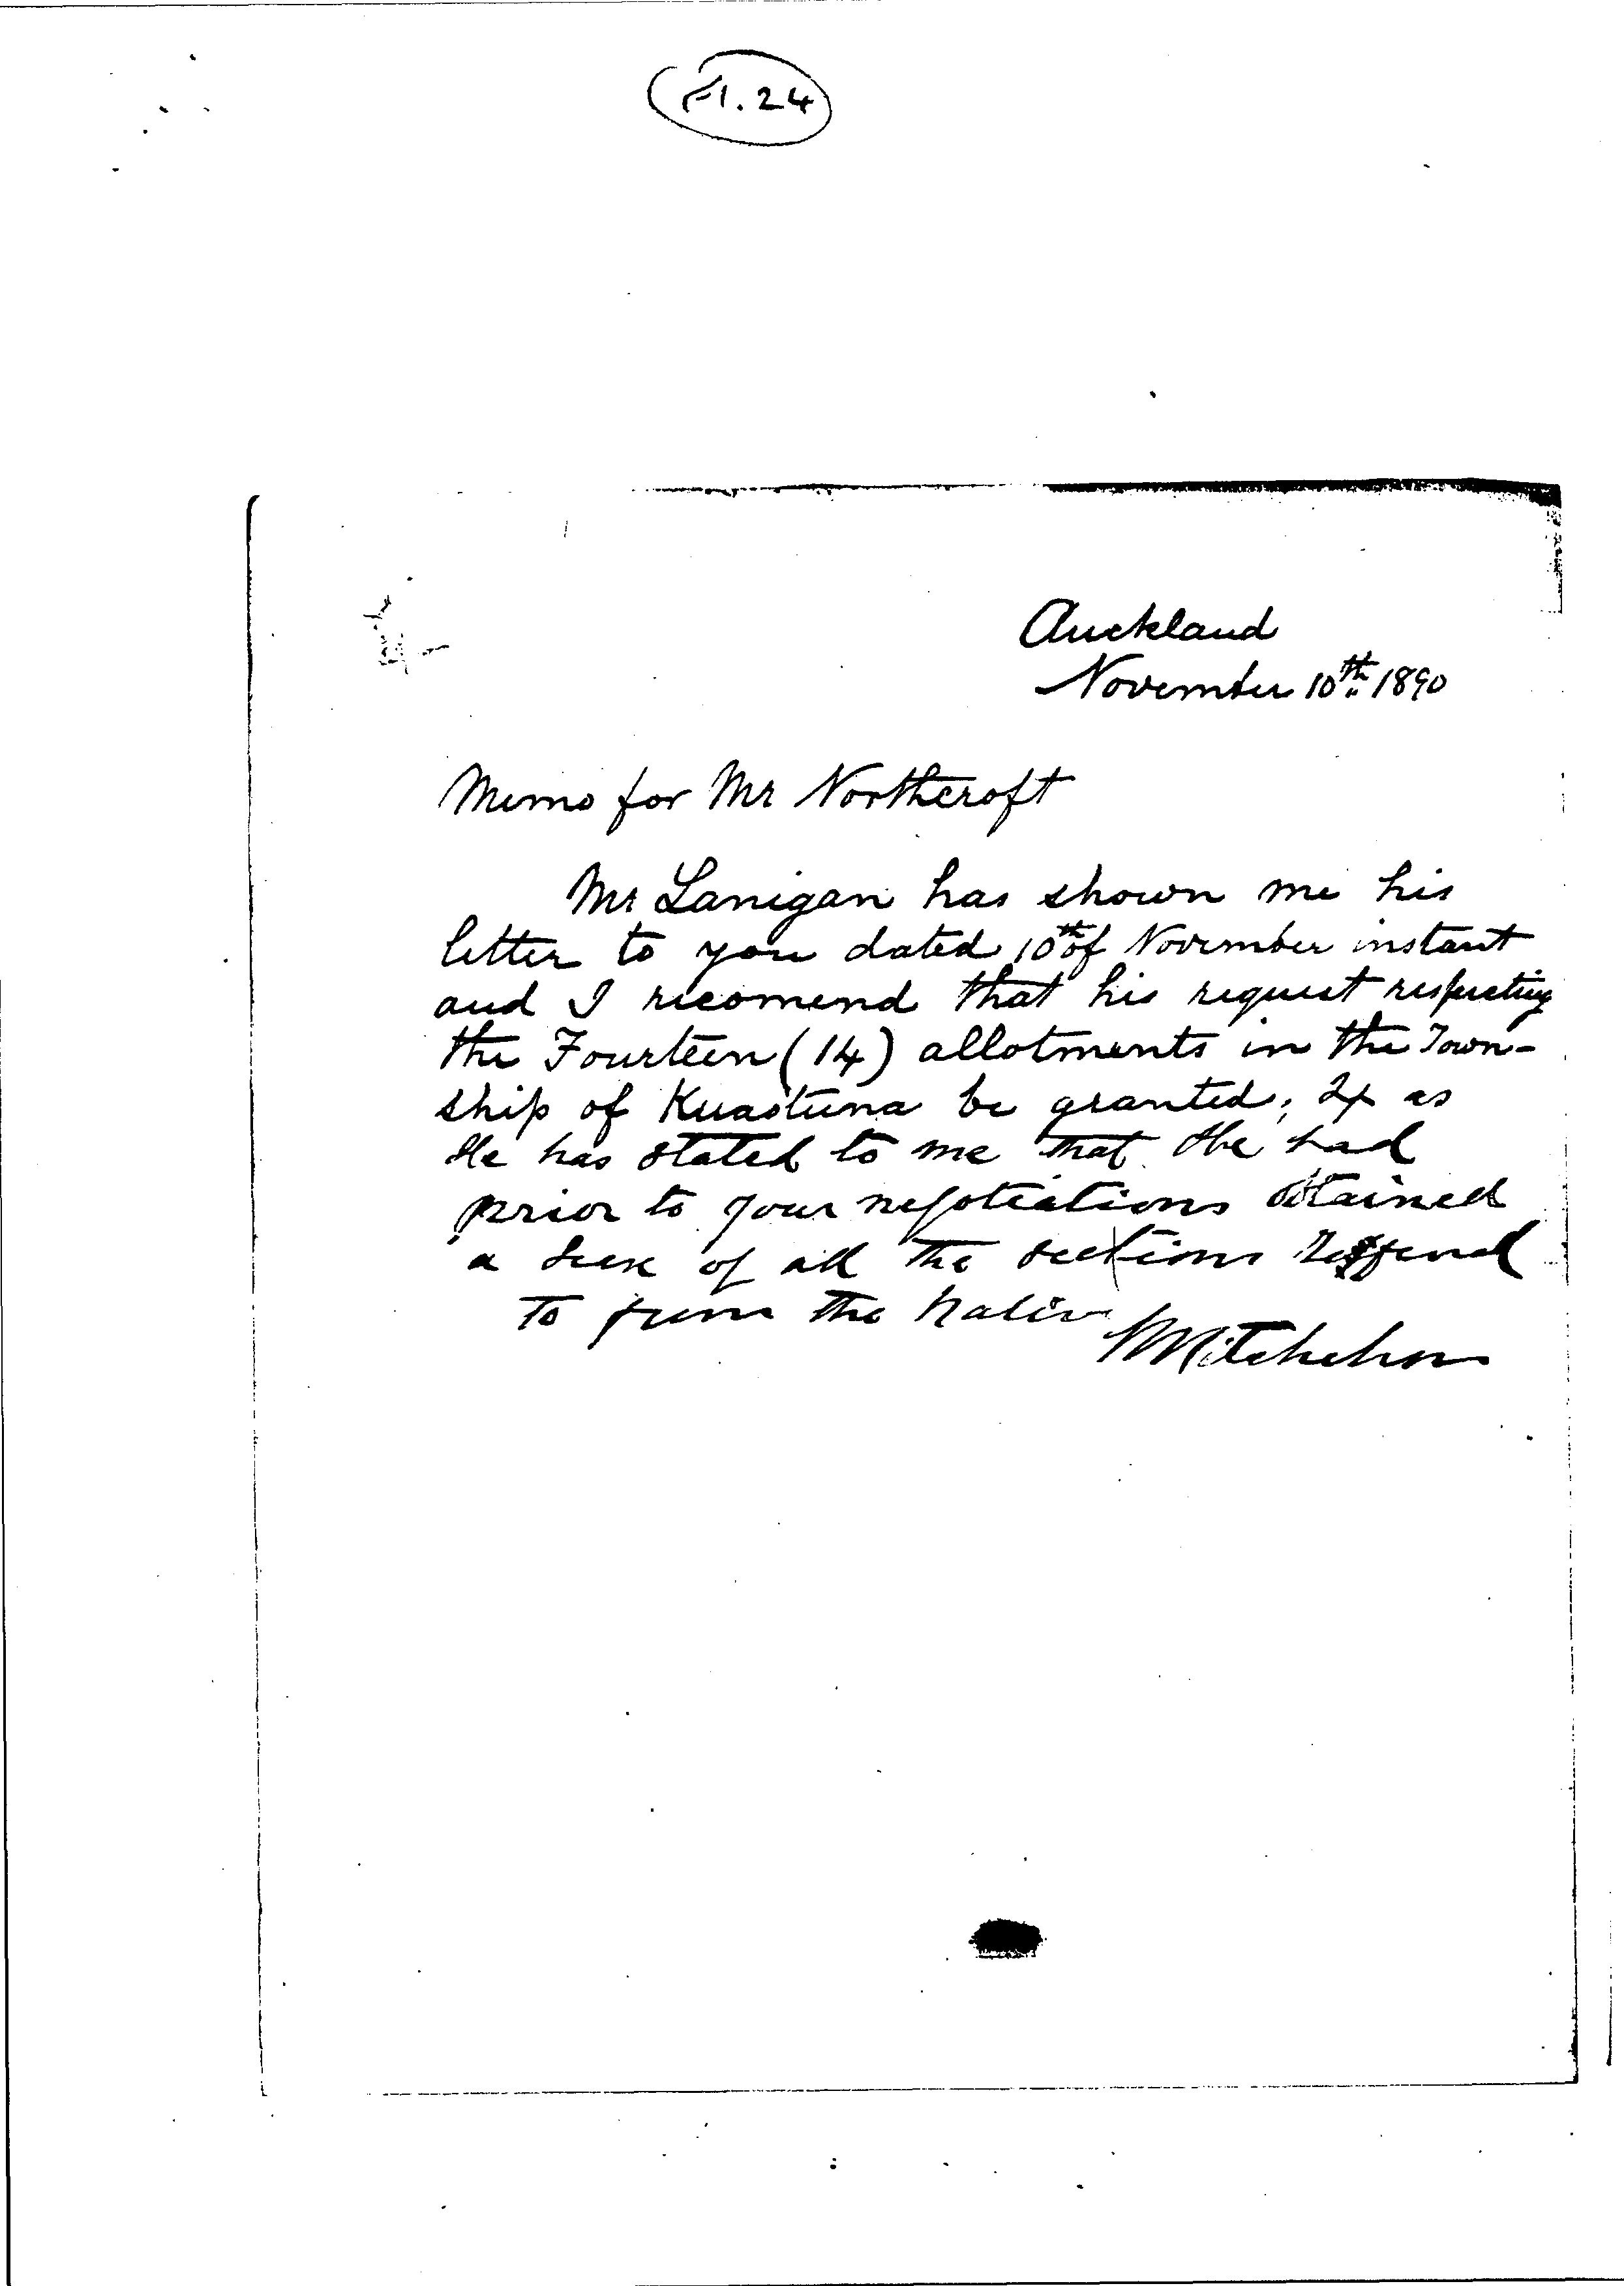 F1.24
Auckland
November 10th 1890
Memo for Mr Northcroft
Mr Lanigan has shown me his
letter to you dated 10th of November instant
and I recomend that his request respecting
the Fourteen (14) allotments in the Town-
ship of Kuaotuna be granted, as
He has stated to me that he had
prior to your negotiations obtained
a of all the sections
to from the Native
Mitchelson